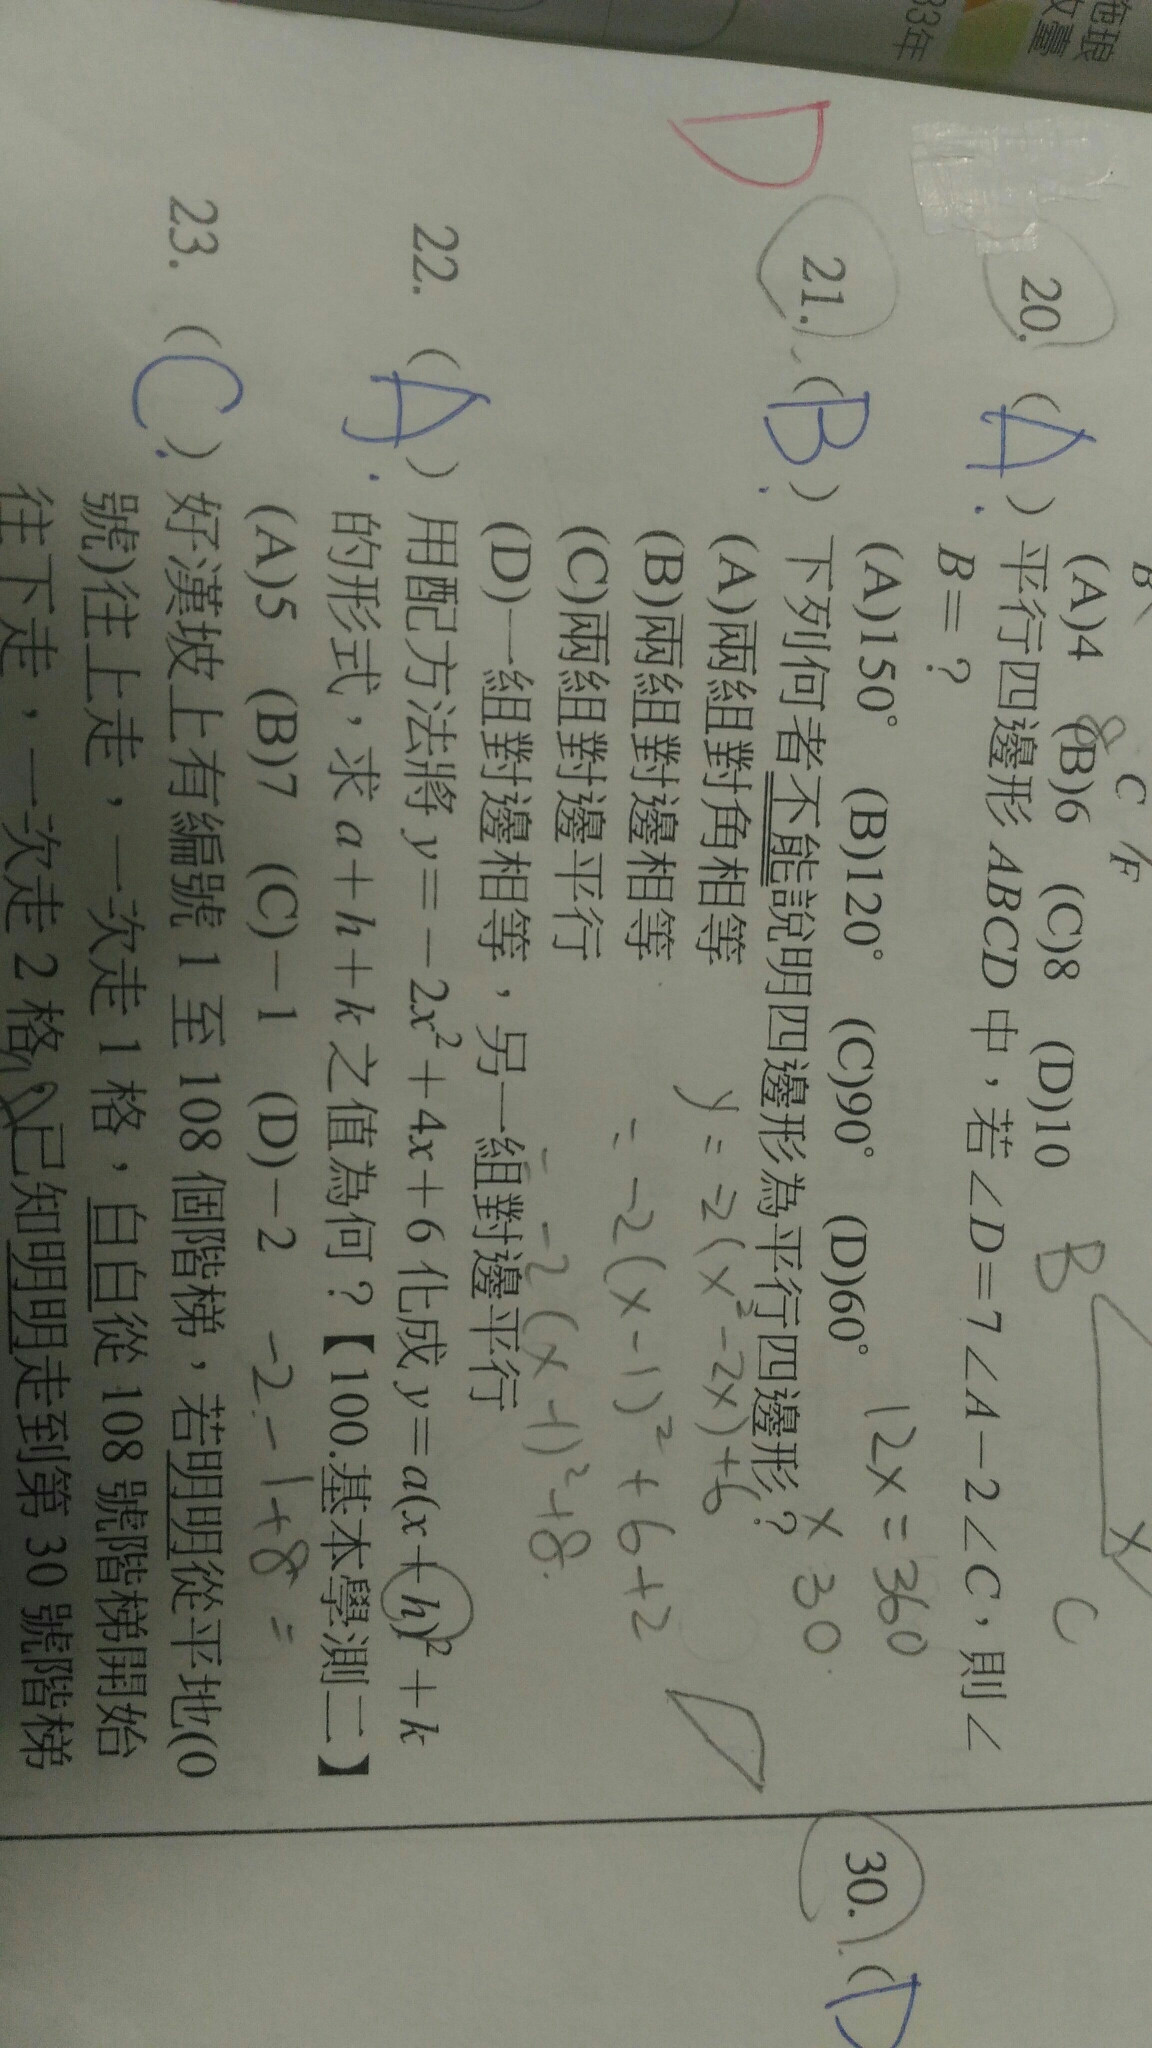 33年
(A)4 (B)6 (C)8 (D)10
8
C
F
20. (A) 平行四邊形 ABCD 中，若∠D＝7∠A－2∠C，則∠
B＝？
(A)150° (B)120° (C)90° (D)60°
B
C
12x = 360
x 30
D
21. (B) 下列何者不能說明四邊形為平行四邊形？
(A)兩組對角相等
(B)兩組對邊相等
(C)兩組對邊平行
(D)一組對邊相等，另一組對邊平行
y = -2(x²-2x)+6
= -2(x-1)²+6+2
= -2(x-1)²+8
22. (A) 用配方法將 y＝－2x²＋4x＋6 化成 y＝a(x＋h)²＋k
的形式，求 a＋h＋k 之值為何？【100.基本學測二】
(A)5 (B)7 (C)－1 (D)－2
-2-1+8=
23. (C) 好漢坡上有編號 1 至 108 個階梯，若明明從平地(0
號)往上走，一次走 1 格，白白從 108 號階梯開始
往下走，一次走 2 格，已知明明走到第 30 號階梯
30. (D